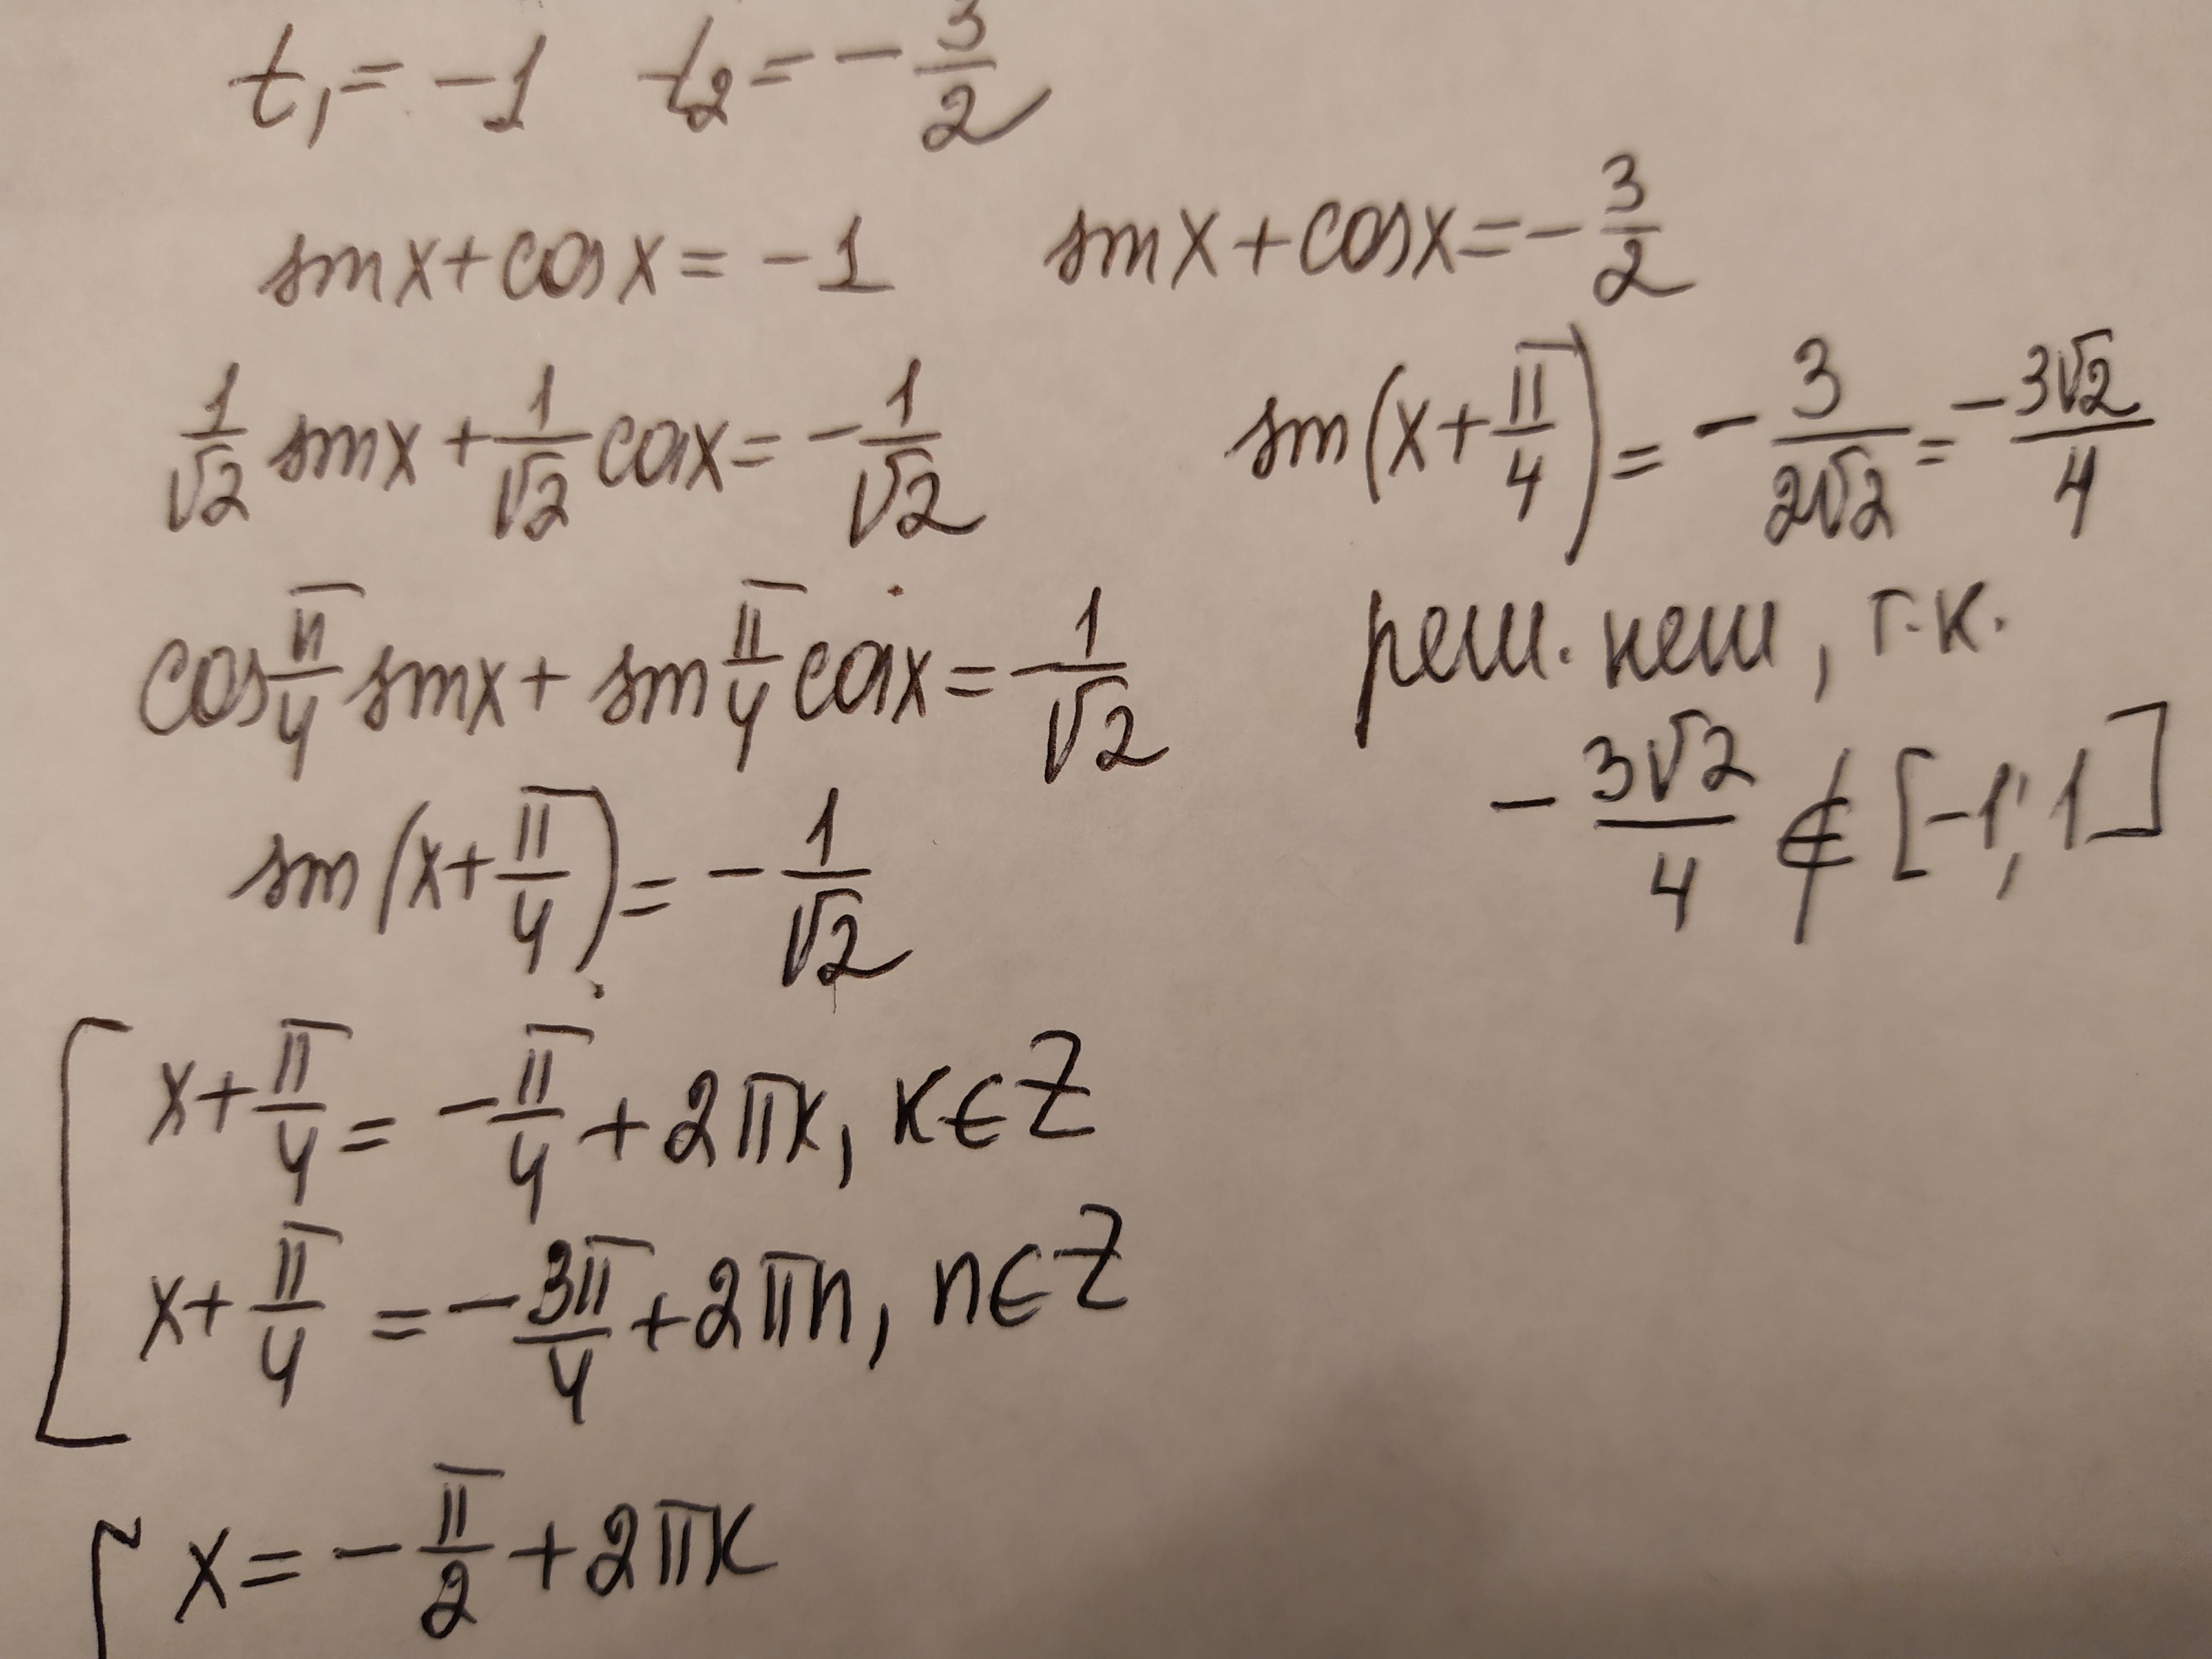 t₁ = -1 t₂ = - 3/2
sinx + cosx = -1 sinx + cosx = - 3/2
1/√2 sinx + 1/√2 cosx = - 1/√2 sin(x + π/4) = - 3/(2√2) = - 3√2/4
cos π/4 sinx + sin π/4 cosx = - 1/√2 реш. нет, т.к.
- 3√2/4 ∉ [-1; 1]
sin(x + π/4) = - 1/√2
[ x + π/4 = - π/4 + 2πk, k ∈ Z
x + π/4 = - 3π/4 + 2πn, n ∈ Z
[ x = - π/2 + 2πk